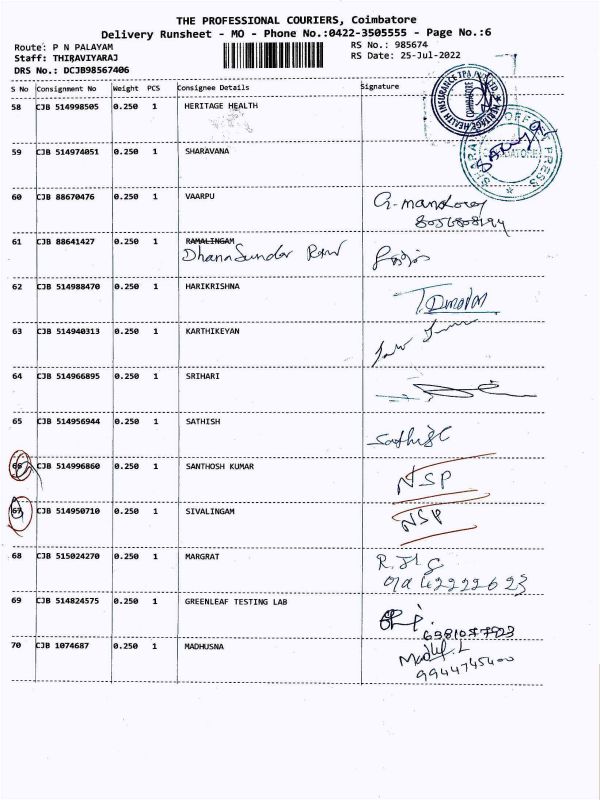 THE PROFESSIONAL COURIERS, Coimbatore
Delivery Runsheet - MO - Phone No.:0422-3505555 - Page No.:6
Route: P N PALAYAM
RS No.: 985674
Staff: THIRAVIYARAJ
RS Date: 25-Jul-2022
DRS No.: DCJB98567406
S No Consignment No Weight PCS Consignee Details Signature
58 CJB 514998505 0.250 1 HERITAGE HEALTH
59 CJB 514974051 0.250 1 SHARAVANA
60 CJB 88670476 0.250 1 VAARPU
61 CJB 88641427 0.250 1 RAMALINGAM
62 CJB 514988470 0.250 1 HARIKRISHNA
63 CJB 514940313 0.250 1 KARTHIKEYAN
64 CJB 514966895 0.250 1 SRIHARI
65 CJB 514956944 0.250 1 SATHISH
66 CJB 514996860 0.250 1 SANTHOSH KUMAR NSP
67 CJB 514950710 0.250 1 SIVALINGAM NSP
68 CJB 515024270 0.250 1 MARGRAT
69 CJB 514824575 0.250 1 GREENLEAF TESTING LAB
70 CJB 1074687 0.250 1 MADHUSNA
9944745400